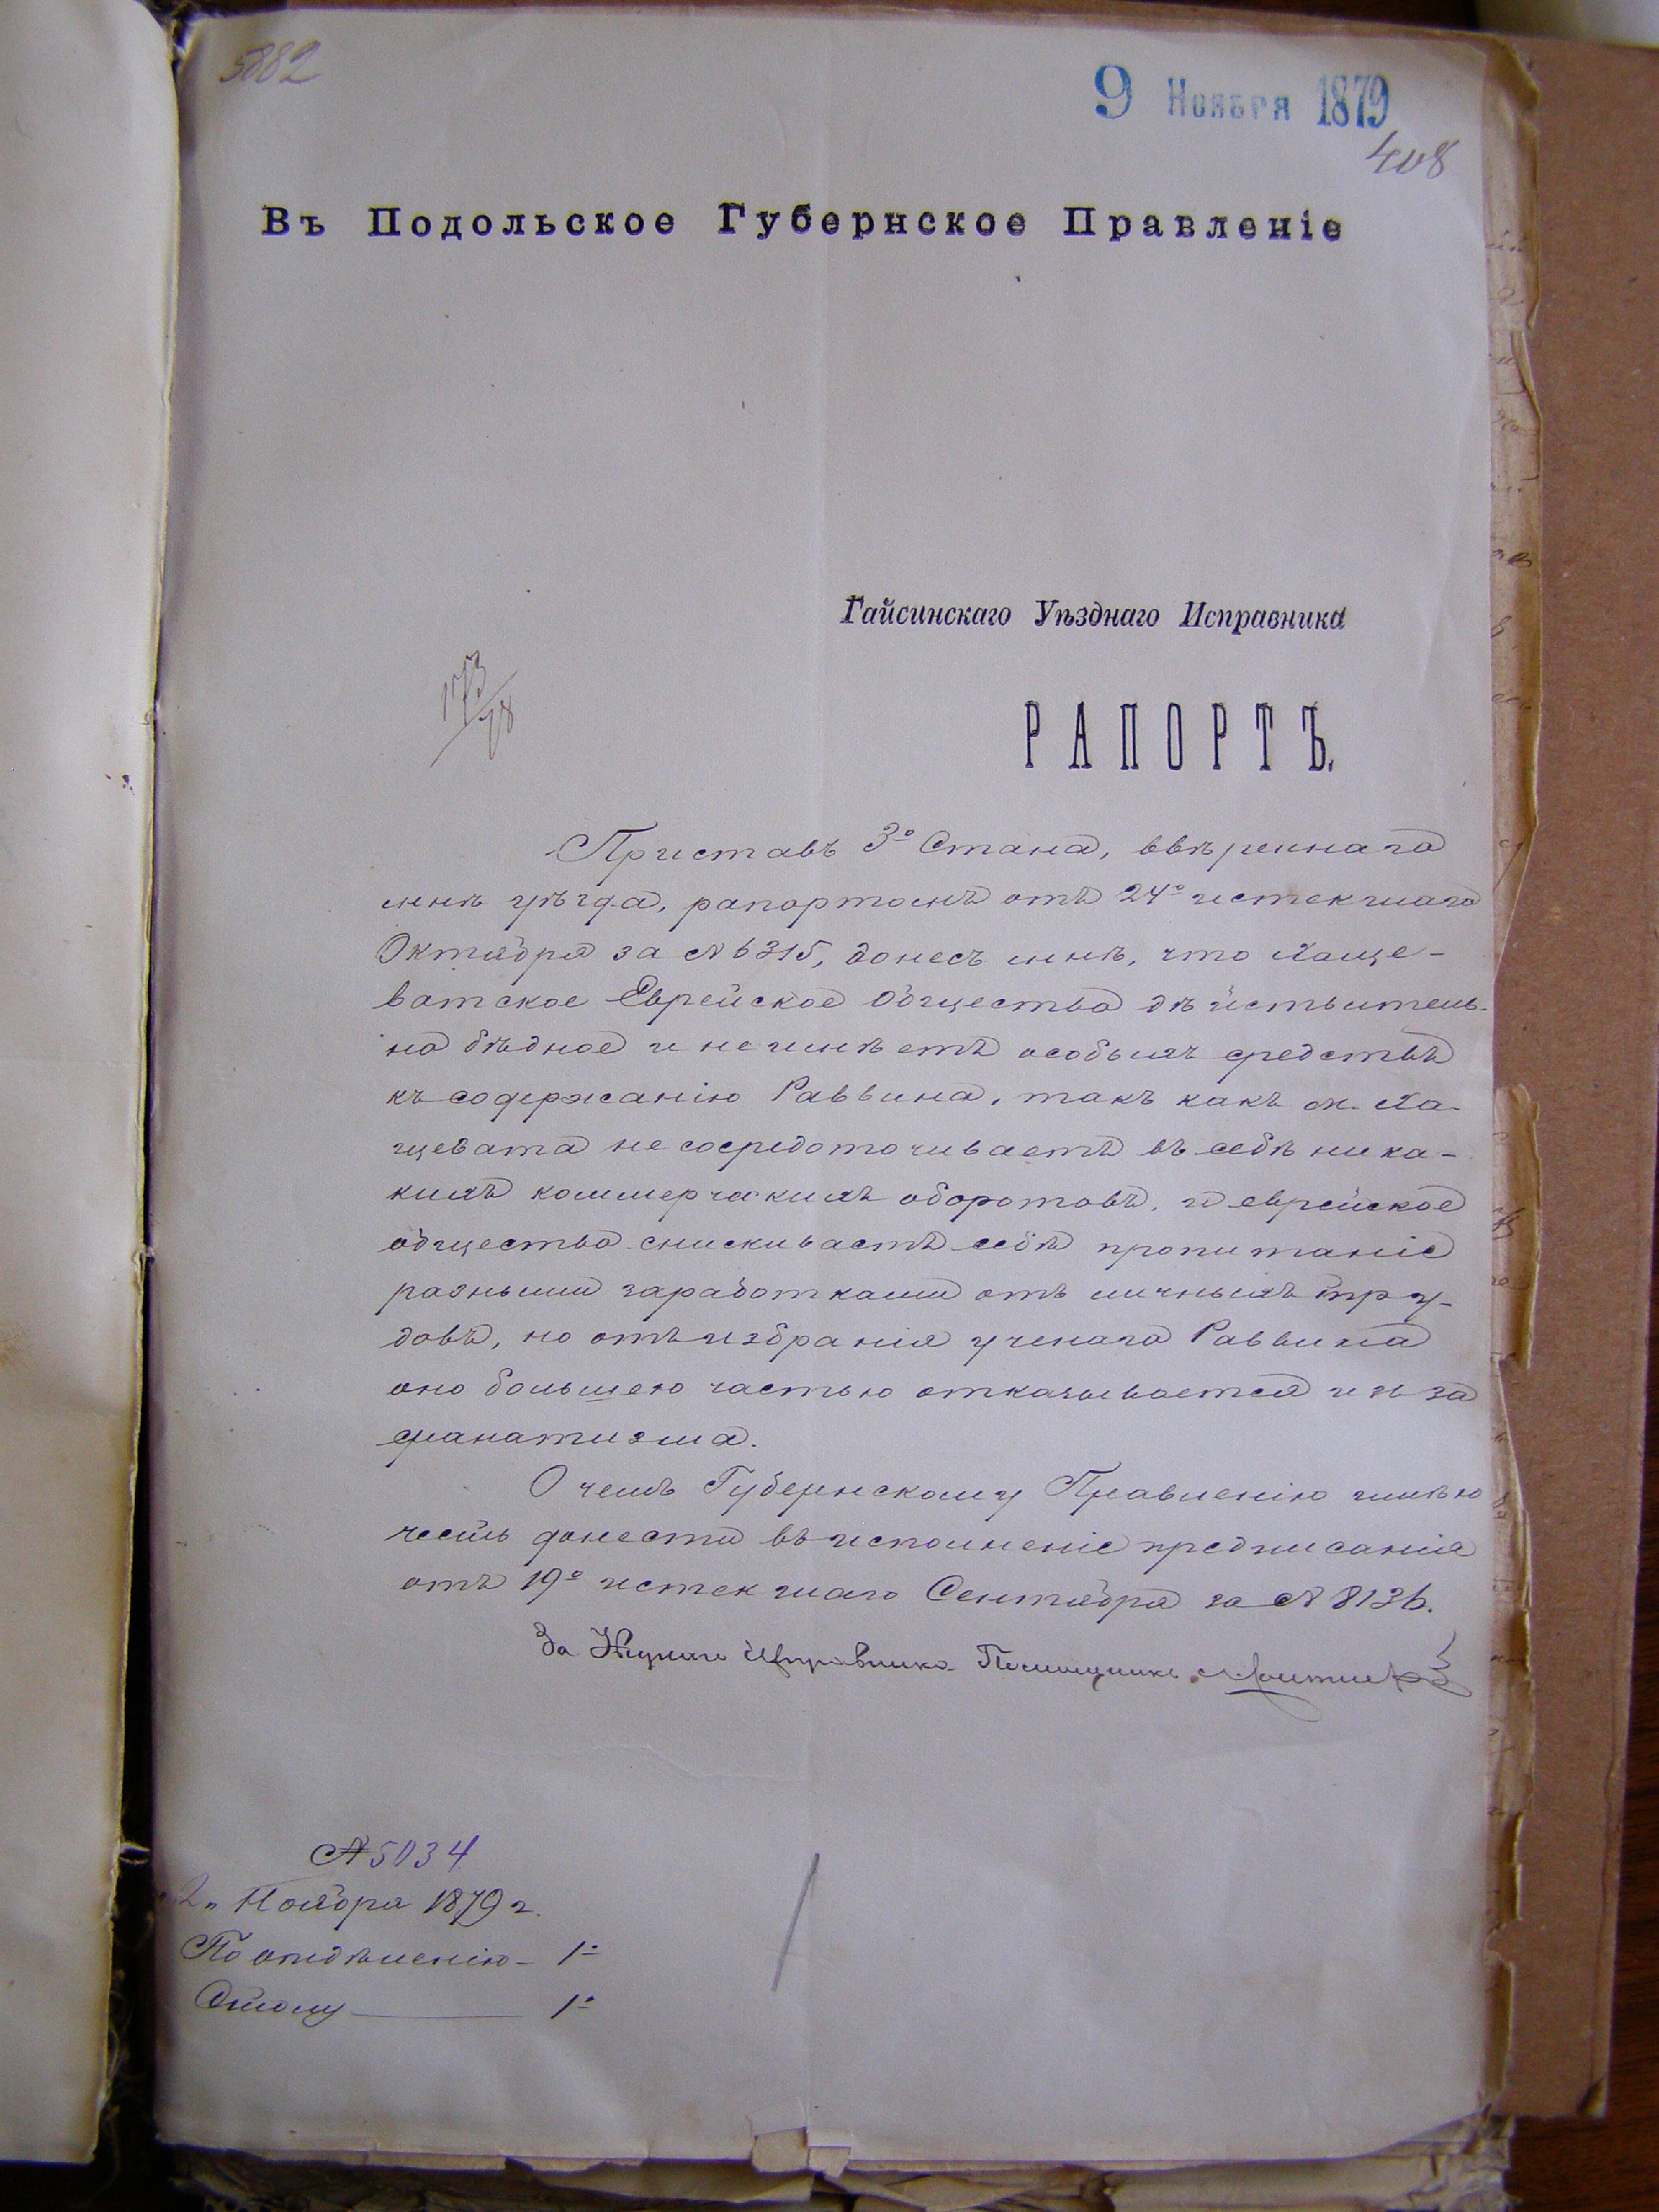 5882
9 Ноября 1879
408
Въ Подольское Губернское Правленіе
Гайсинскаго Уѣзднаго Исправника
РАПОРТЪ.
Приставъ 3º Стана, ввѣреннаго
мнѣ уѣзда, рапортомъ отъ 24º истекшаго
Октября за № 6315, донесъ мнѣ, что Хаще-
ватское Еврейское Общество дѣйствитель-
но бѣдное и не имѣетъ особыхъ средствъ
къ содержанію Раввина, такъ какъ м. Ха-
щевата не сосредоточиваетъ въ себѣ ника-
кихъ коммерческихъ оборотовъ, и еврейское
общество снискиваетъ себѣ пропитаніе
разными заработками отъ личныхъ тру-
довъ, но отъ избранія ученаго Раввина
оно большею частью отказывается изъ за
фанатизма.
О чемъ Губернскому Правленію имѣю
честь донести въ исполненіе предписанія
отъ 19º истекшаго Сентября за № 8136.
За Исправника Помощникъ
№ 5034
2" Ноября 1879 г.
По отдѣленію - 1º
Столу 1º